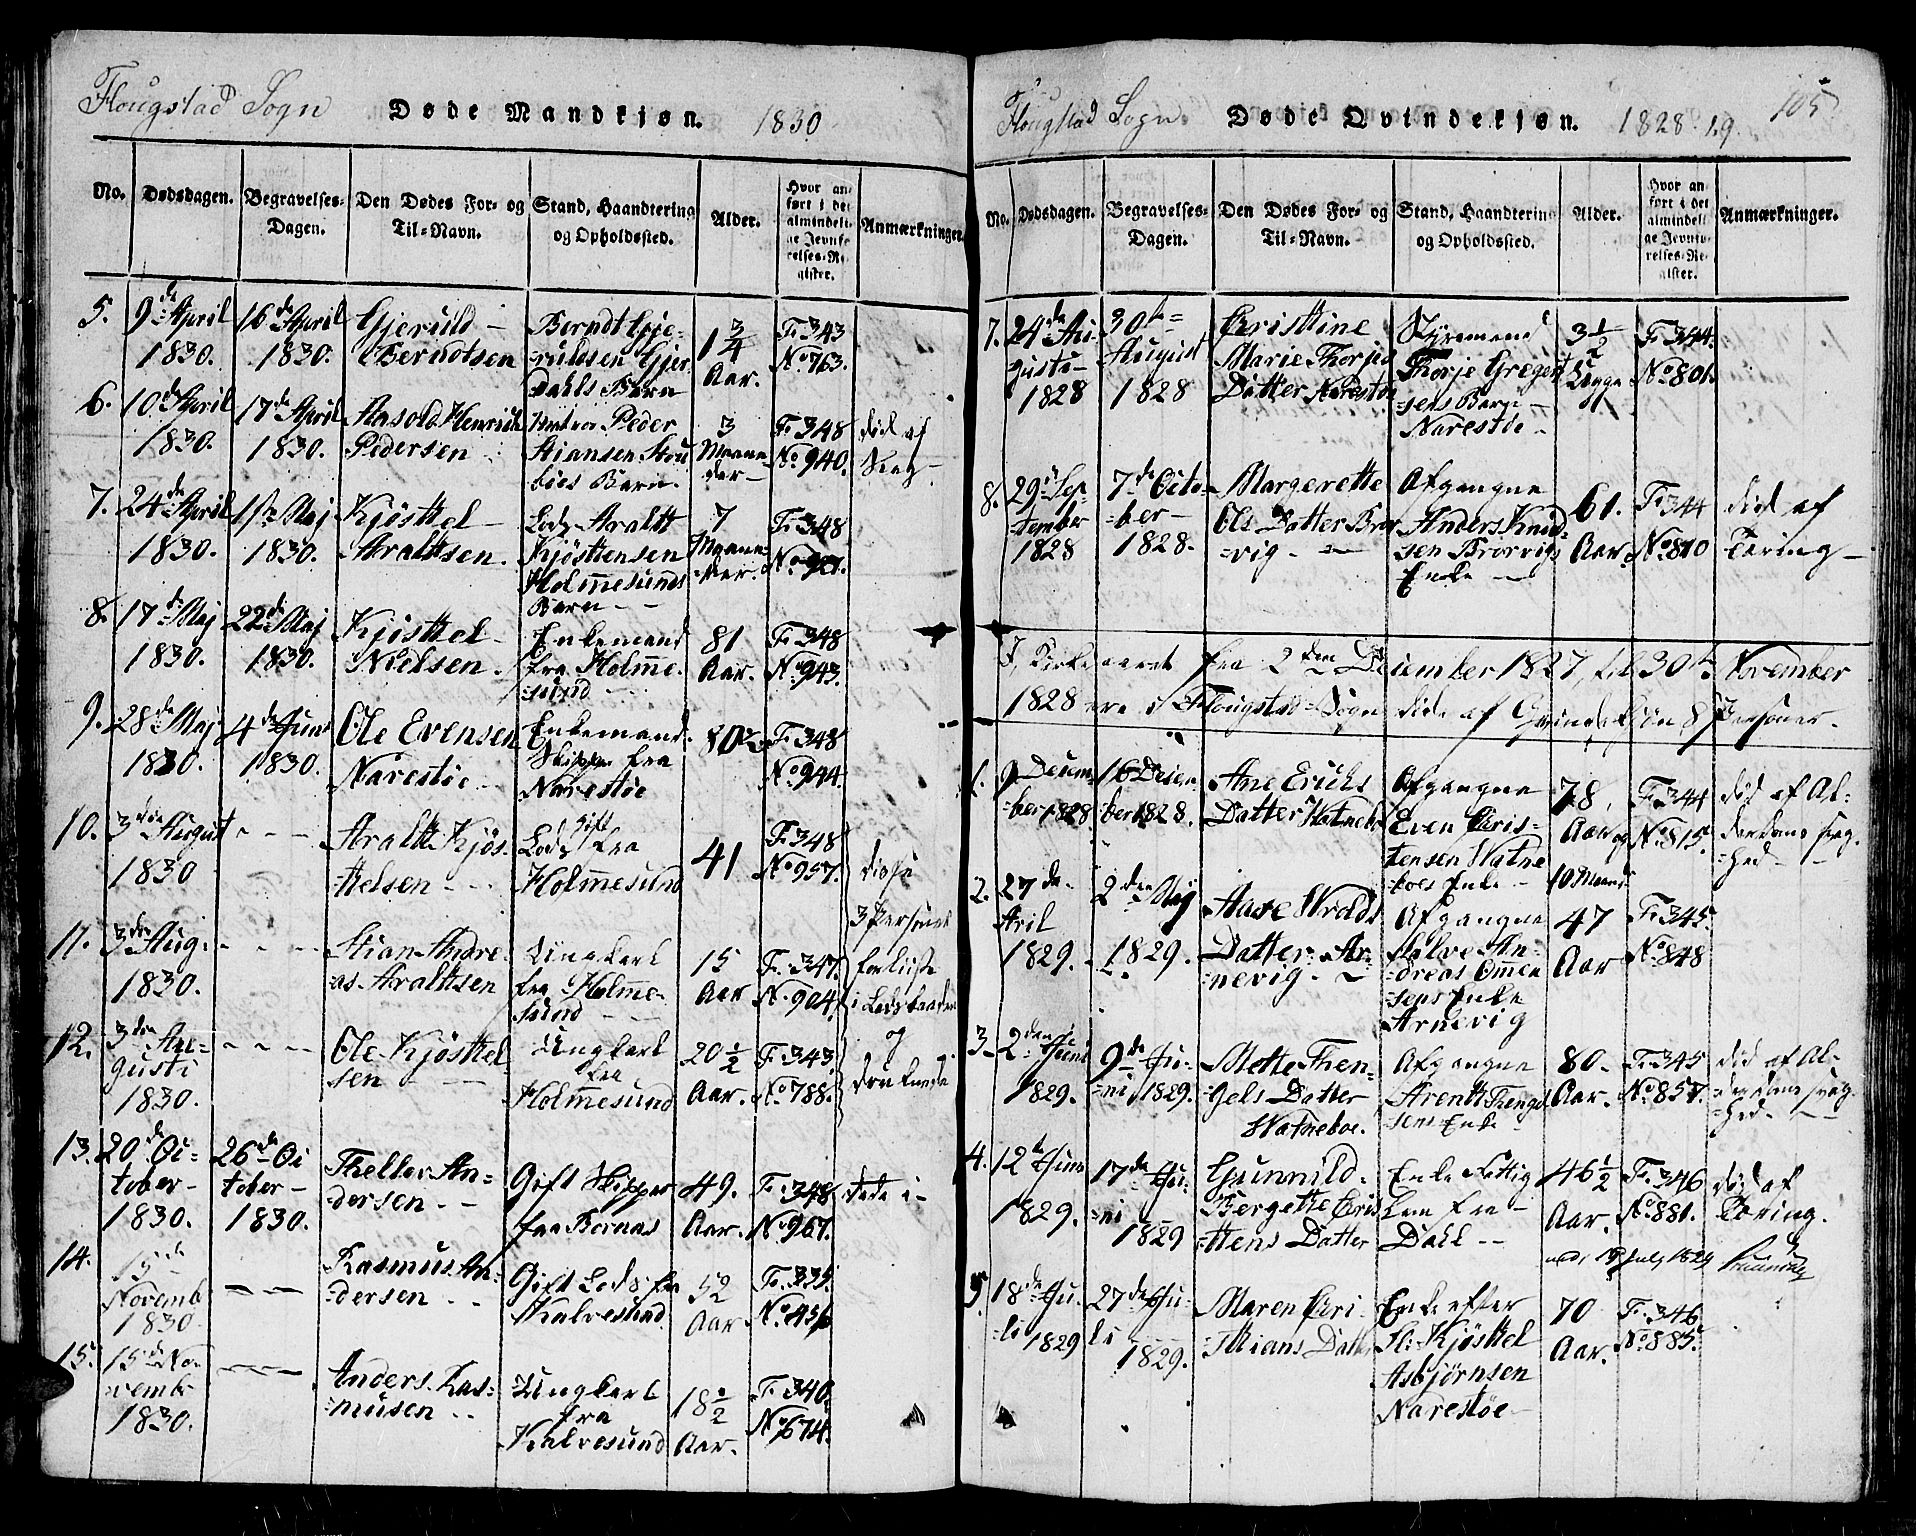 Flougstad Sogn
Døde Mandkjøn.
1830
No.
Dødsdagen.
Begravelses-
Dagen.
Den Dødes For- og
Til-Navn.
Stand, Haandtering
og Opholdssted.
Alder.
Hvor an-
ført i det
almindeli-
ge Jevnfø-
relses-Re-
gister.
Anmærkninger.
5.
9de April
1830.
16de April
1830.
Gjeruld -
Berndtsen
Berndt Gje-
ruldsen Gjer
Dahls Barn
1 3/4
Aar.
F. 343
No 763.
6.
10de April
1830.
17de April
1830.
Aasold Henrich
Pedersen
Peder
Stiansen
Barn.
3
Maane-
der -
F. 348
No 940.
død af
7.
24de April
1830.
1ste Maj
1830.
Kjösttel -
Araltsen.
Lods Araltt
Kjösttensen
Holmesunds
Barn - -
7
Maane-
der.
F. 348
No 927.
8.
17de Maj
1830.
22de Maj
1830.
Kjösttel -
Nielsen.
Enkemand
fra Holme-
sund
81
Aar.
F. 348
No 943.
9.
28de Maj
1830.
4de Juni
1830.
Ole Evensen
Narestöe
Enkemand
Skipper fra
Narestöe
80 1/2
F. 348
No 944.
10.
3die August
1830
- - -
Araltt Kjös-
ttelsen - -
Gift
Lods fra
Holmesund
41
F. 348
No 957.
disse
3 Personer
forliiste
i Lodsbaaden
og
druknede
11.
3die Aug.
1830.
- - -
Stian Andre-
as Araltsen
Ungkarl
fra Holme-
sund - -
15
Aar
F. 347.
No 904.
12.
3die Au-
gusti
1830.
- - -
Ole Kjösttel
sen -
Ungkarl
fra
Holmesund
20 1/2
Aar.
F. 343.
No 788.
13.
20de Oc-
tober -
1830.
26de Oc
tober -
1830.
Thellev An-
dersen. -
Gift Skipper
fra Bornæs
49.
Aar.
F. 348.
No 967.
14.
15de
Novemb
1830.
- - -
Rasmus An-
dersen - -
Gift Lods fra
Kalvesund
52
Aar
F. 335.
No 456
15.
15de No-
vembr
1830.
- - -
Anders Ras-
musen - -
Ungkarl
fra
Kalvesund
18 1/2
Aar.
F. 340.
No 674.
Flougstad Sogn.
Døde Qvindekjøn.
1828. 29.
105
No.
Dødsdagen.
Begravelses-
Dagen.
Den Dødes For- og
Til-Navn.
Stand, Haandtering
og Opholdsted.
Alder.
Hvor an-
ført i det
almindeli-
ge Jevnfø-
relses-Re-
gister.
Anmærkninger.
7.
24de Au-
gusti -
1828
30te
August
1828
Cristtine
Marie Thorje
Datter Narestöe
Styrmand
Thorje Gregert
sens Barn -
Narestöe -
3 1/2
Uger
F. 344.
No 801.
8.
29de Sep-
tember
1828
7de Octo-
ber -
1828.
Margerette
Ols Datter Bror
vig. -
Afgangne
Anders Knud-
sen Brorvigs
Enke -
61.
Aar.
F. 344
No 810
død af
Tæring -
I Kirkeaaret fra 2den December 1827, til 30te November
1828 ere i Flougstad Sogn døde af Qvindekiøn 8 Personer.
1.
9 Decem-
ber 1828.
16 Decem
ber 1828.
Ane Erichs
Datter Hatnebo
Afgangne
Even Cris-
tensen Hatne
boes Enke -
78,
Aar og
10 Maand.
F. 344
No 815.
død af Al-
derdoms svag-
hed - -
2.
27de
Aril
1829.
2den Maj
1829.
Aase
Datter Ar-
nevig. -
Afgangne
Halve An-
dreas Omen
sens Enke
Arnevig
47
Aar
F. 345.
No 848
3.
2den Juni
1829.
9de Ju-
ni 1829.
Mette Then-
gels Datter
Hatneboe.
Afgangne
Arentt Thengel
sens Enke -
80.
Aar.
F. 345
No 857.
død af Al-
derdoms svag-
hed -
4.
12te Juni
1829.
17de Ju-
ni
1829
Gunnild
Bergette Cris
ttens Datter
Enke Fattig
Lem fra -
Dahl - -
46 1/2
Aar.
F. 346
No 881.
død af
Tæring.
5.
18de Ju-
li 1829
27de Ju-
li
1829.
Maren Cri-
sttians Datter
Enke efter
Sl. Kjösttel
Asbjörnsen
Narestöe -
70
Aar.
F. 346
No 885.